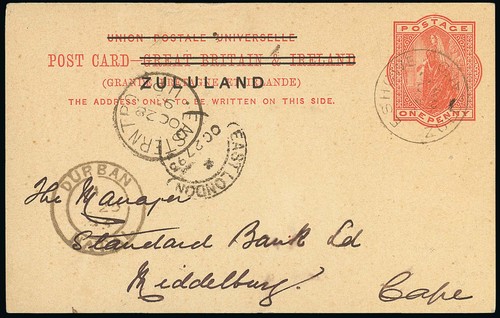 UNION POSTALE UNIVERSELLE
POST CARD—GREAT BRITAIN & IRELAND
(GRANDE BRETAGNE ET IRLANDE)
ZULULAND
THE ADDRESS ONLY TO BE WRITTEN ON THIS SIDE.
POSTAGE
ONE PENNY
OC 28
EAST LONDON
OC 27 9
DURBAN
The Manager
Standard Bank Ld
Middelburg.
Cape